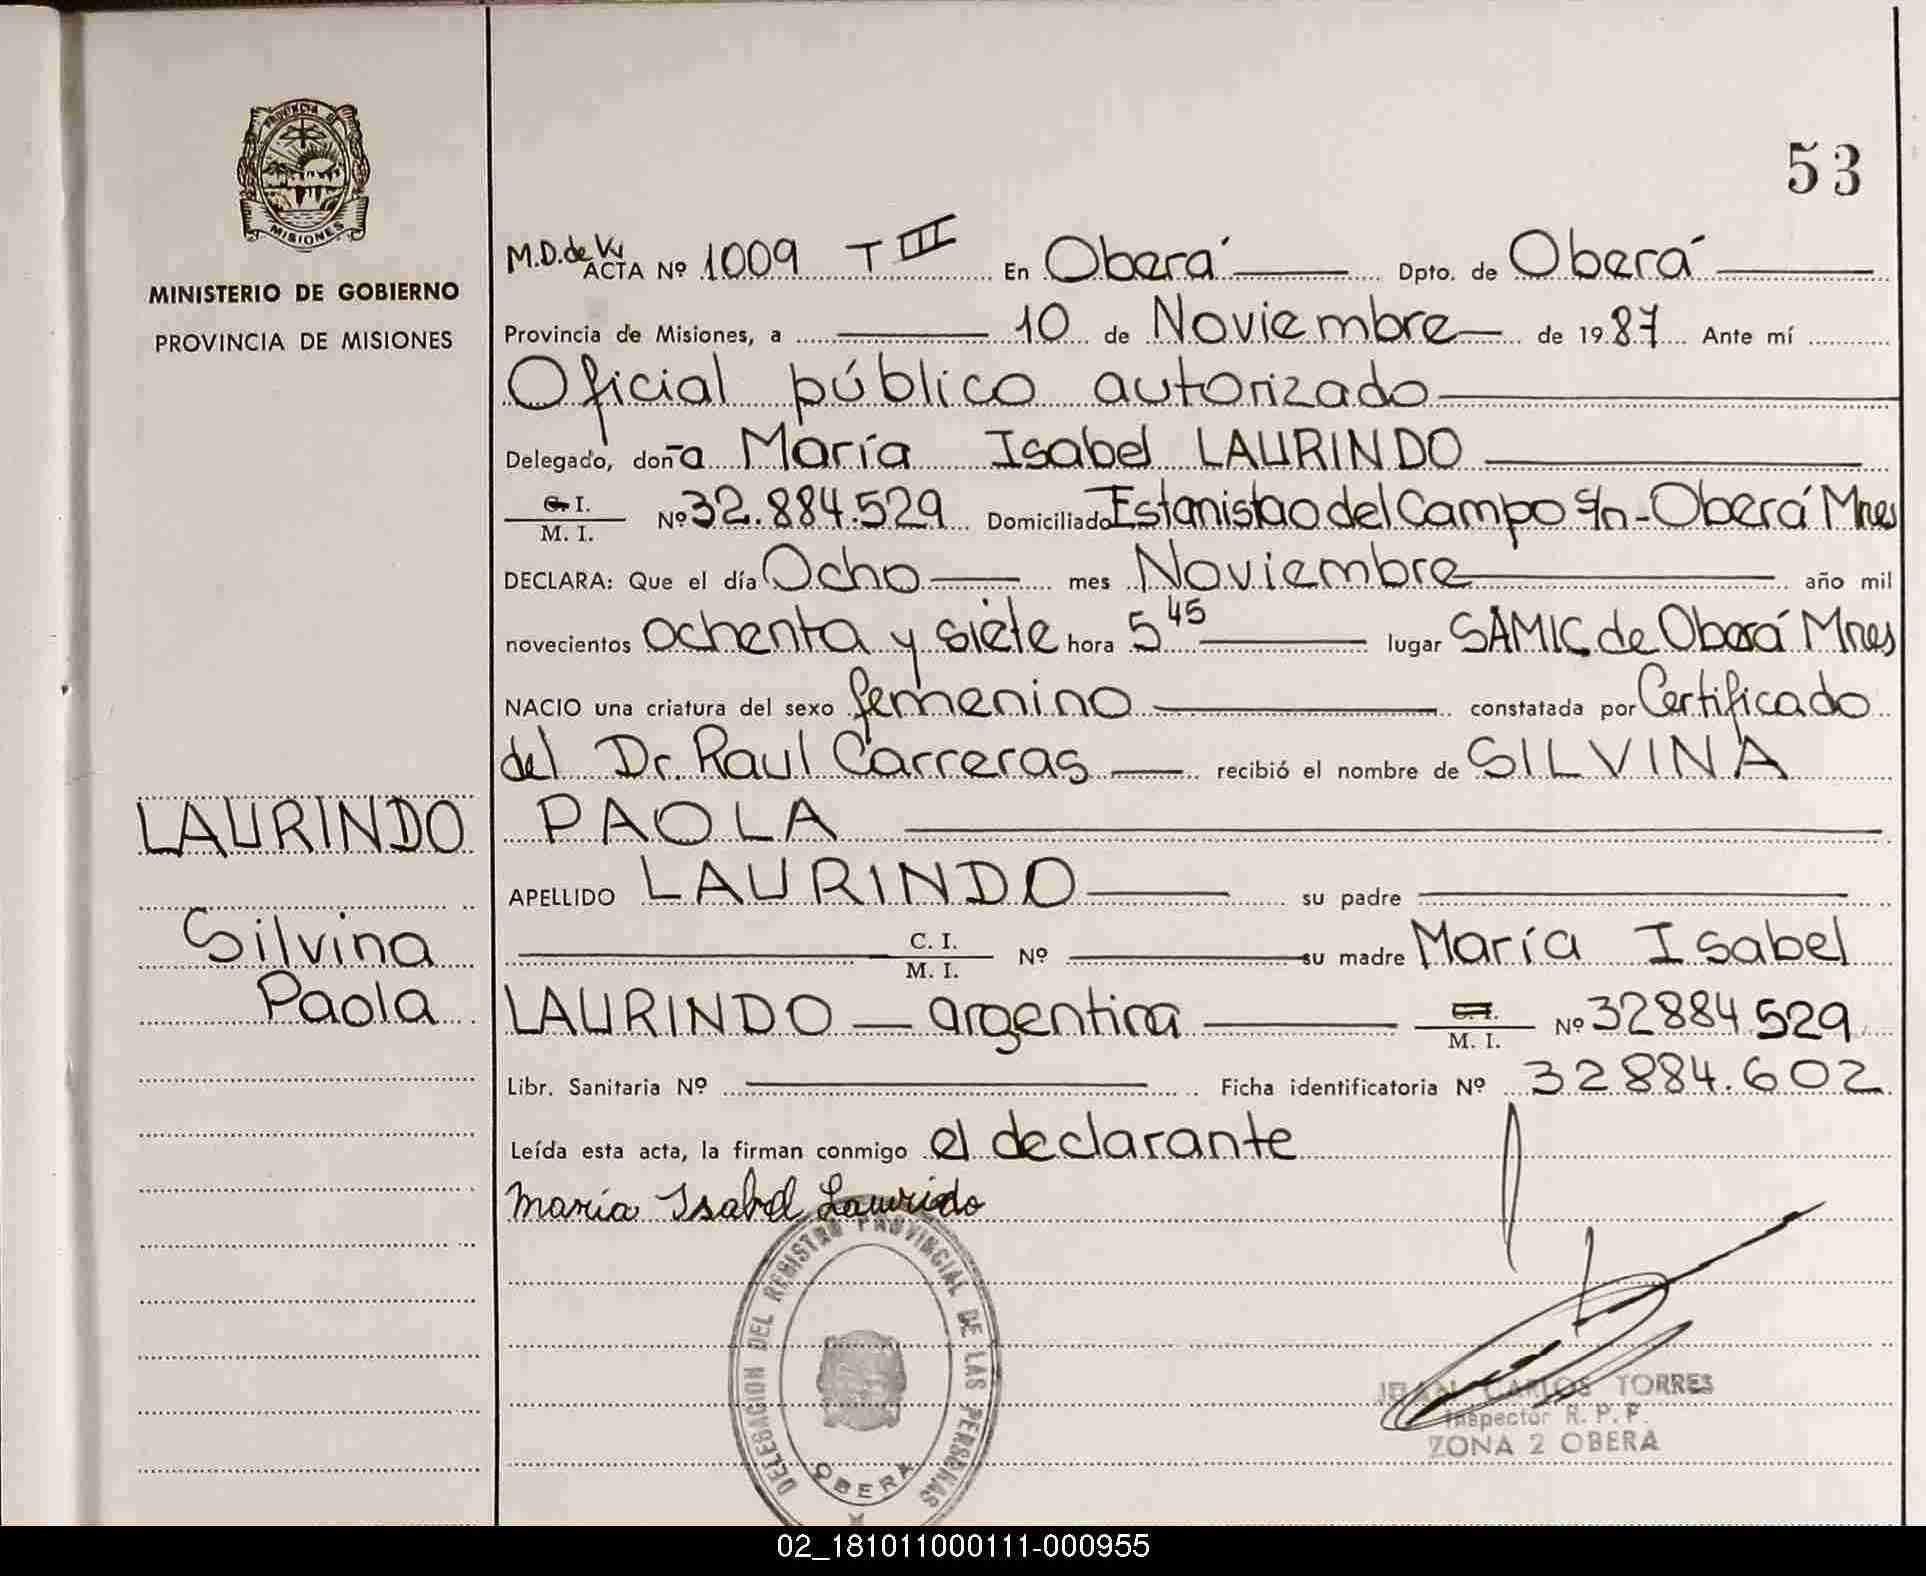 PROVINCIA DE
MISIONES
MINISTERIO DE GOBIERNO
PROVINCIA DE MISIONES
53
M.D. de V. ACTA Nº 1009 T III En Oberá Dpto. de Oberá
Provincia de Misiones, a 10 de Noviembre de 1987 Ante mí
Oficial público autorizado
Delegado, doña María Isabel LAURINDO
C. I.
M. I. Nº 32.884.529 Domiciliado Estanislao del Campo s/n - Oberá Mnes
DECLARA: Que el día Ocho mes Noviembre año mil
novecientos ochenta y siete hora 5 45 lugar SAMIC de Oberá Mnes
NACIO una criatura del sexo femenino constatada por Certificado
del Dr. Raul Carreras recibió el nombre de SILVINA
LAURINDO PAOLA
APELLIDO LAURINDO su padre
Silvina
C. I.
M. I. Nº su madre María Isabel
Paola
LAURINDO argentina C. I.
M. I. Nº 32884529
Libr. Sanitaria Nº Ficha identificatoria Nº 32884.602
Leída esta acta, la firman conmigo el declarante
María Isabel Laurindo
DELEGACION DEL REGISTRO PROVINCIAL DE LAS PERSONAS
OBERA
JUAN CARLOS TORRES
Inspector R. P. P.
ZONA 2 OBERA
02_181011000111-000955